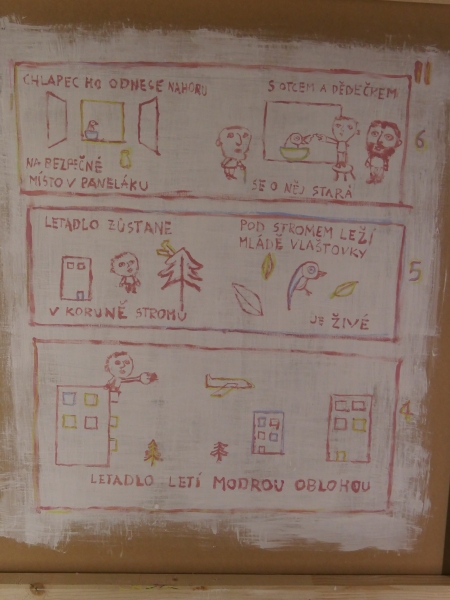 CHLAPEC HO ODNESE NAHORU
NA BEZPEČNÉ
MÍSTO V PANELÁKU
S OTCEM A DĚDEČKEM
SE O NĚJ STARÁ
6
LETADLO ZŮSTANE
V KORUNĚ STROMU
POD STROMEM LEŽÍ
MLÁDĚ VLAŠŤOVKY
JE ŽIVÉ
5
4
LETADLO LETÍ MODROU OBLOHOU